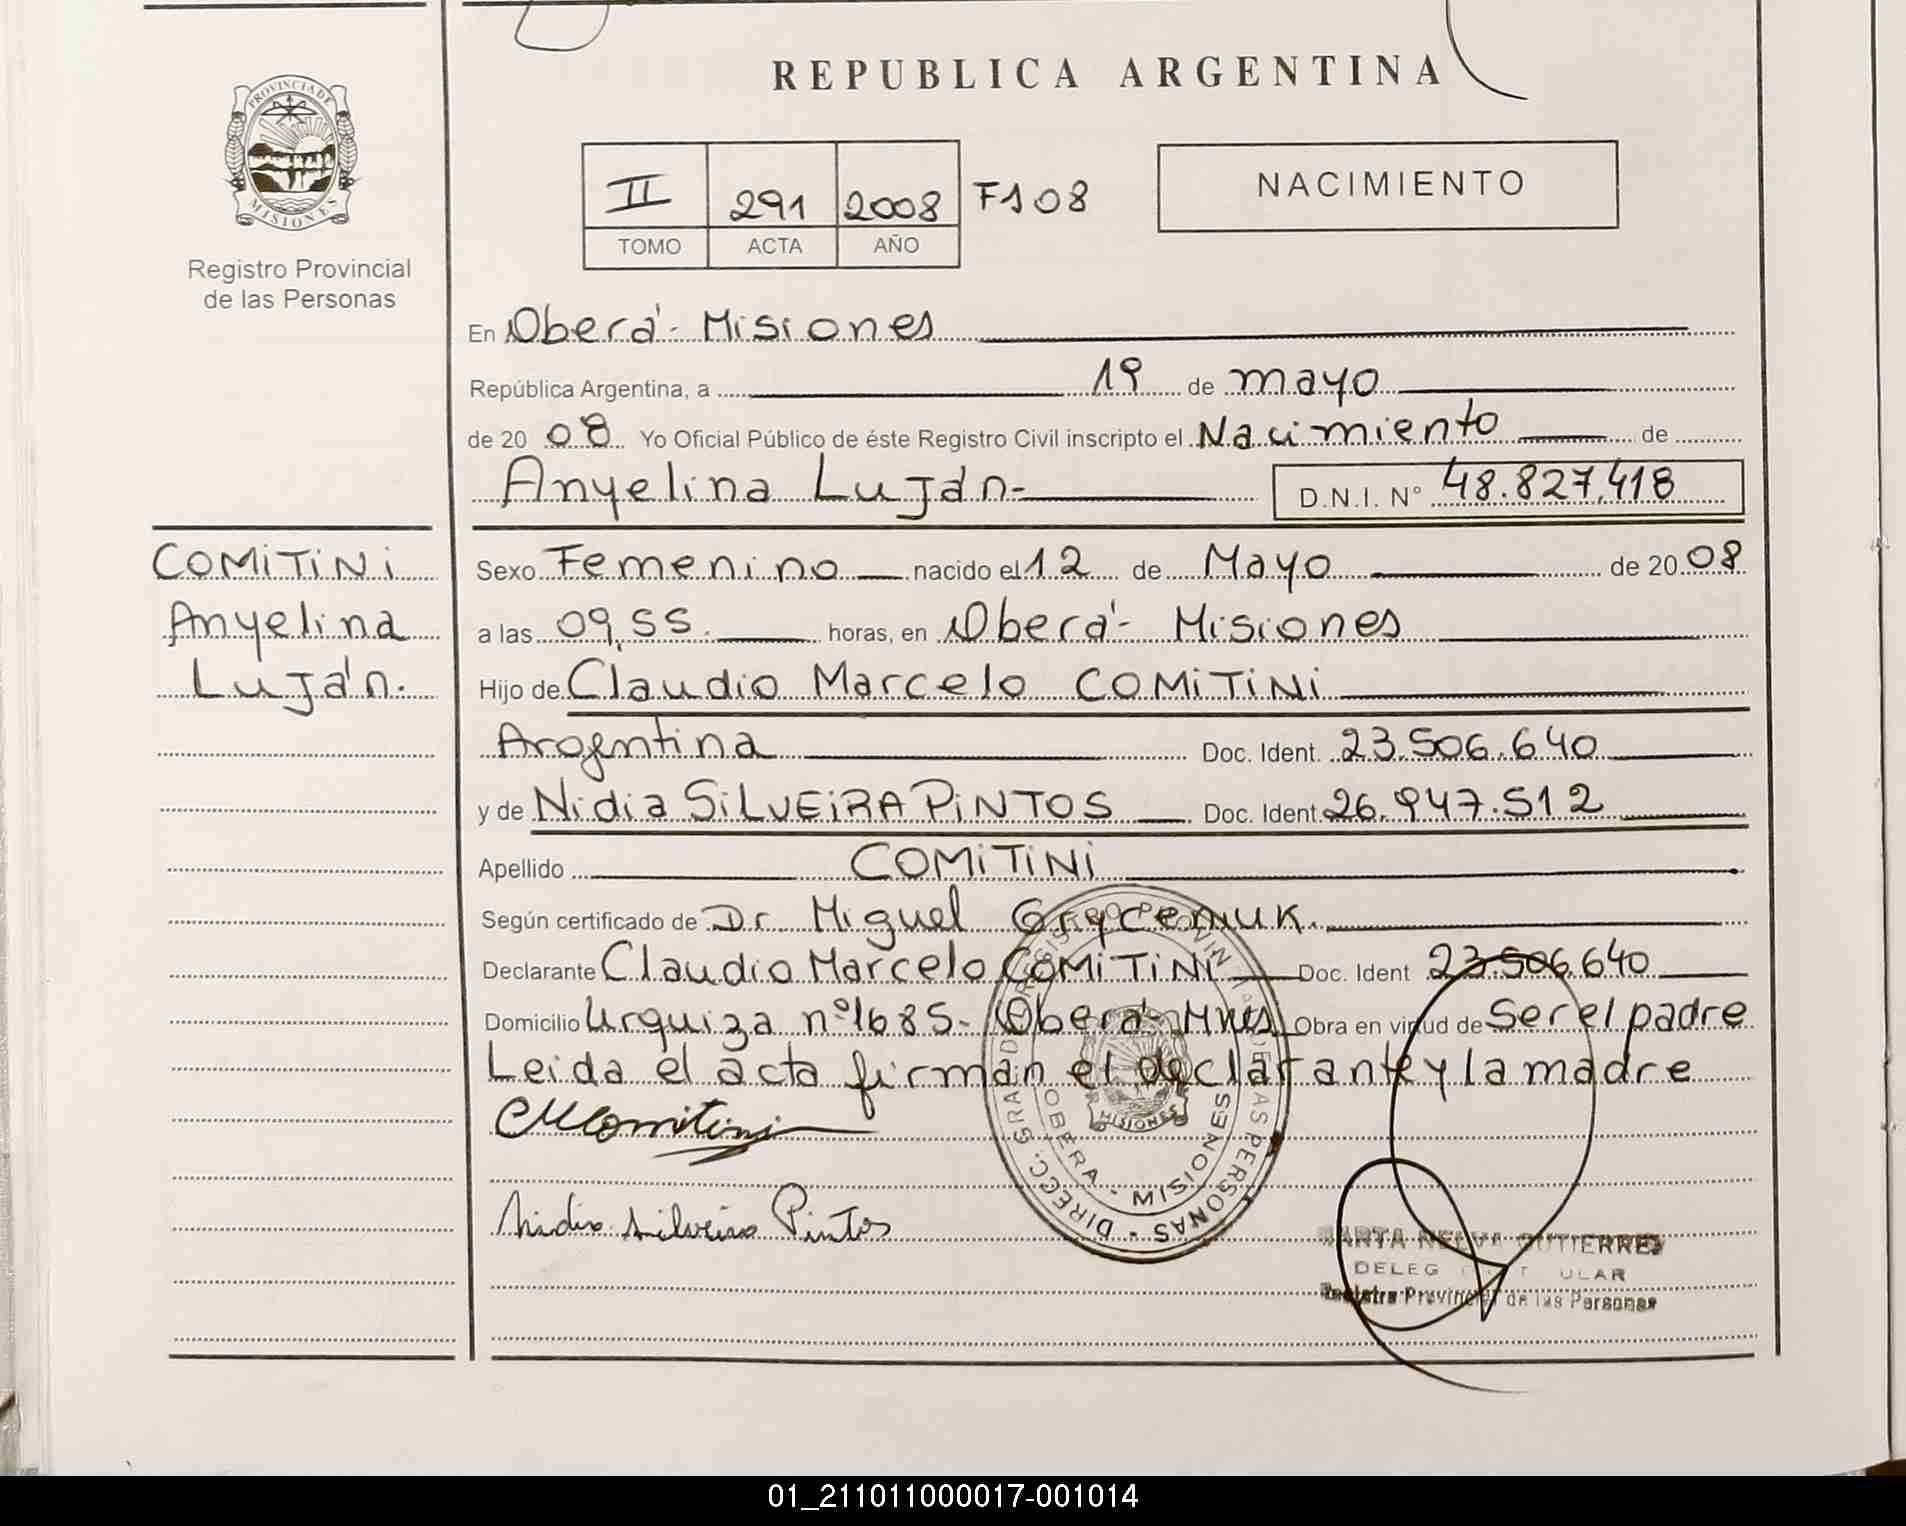 REPUBLICA ARGENTINA
PROVINCIA DE
MISIONES
Registro Provincial
de las Personas
II 291 2008 F108
TOMO ACTA AÑO
NACIMIENTO
En Oberá - Misiones
República Argentina, a 19 de mayo
de 20 08 Yo Oficial Público de éste Registro Civil inscripto el Nacimiento de
Anyelina Luján.- D.N.I. N° 48.827.418
COMiTiNi
Anyelina
Luján.
Sexo Femenino nacido el 12 de Mayo de 20 08
a las 09,55. horas, en Oberá - Misiones
Hijo de Claudio Marcelo COMiTiNi
Argentina Doc. Ident. 23.506.640
y de Nidia SiLVEiRA PiNTOS Doc. Ident. 26.947.512
Apellido COMiTiNi
Según certificado de Dr. Miguel
Declarante Claudio Marcelo COMiTiNi Doc. Ident 23.506.640
Domicilio Urquiza n° 1685- Oberá - Mnes Obra en virtud de Ser el padre
Leida el acta firman el declarante y la madre
CMComitini
Nidia Silveira Pintos
DIRECC. GRAL. DE REGISTRO PROVINCIAL DE LAS PERSONAS -
OBERA - MISIONES
MISIONES
MARTA NELVA GUTIERREZ
DELEG ULAR
Registro Provincial de las Personas
01_211011000017-001014